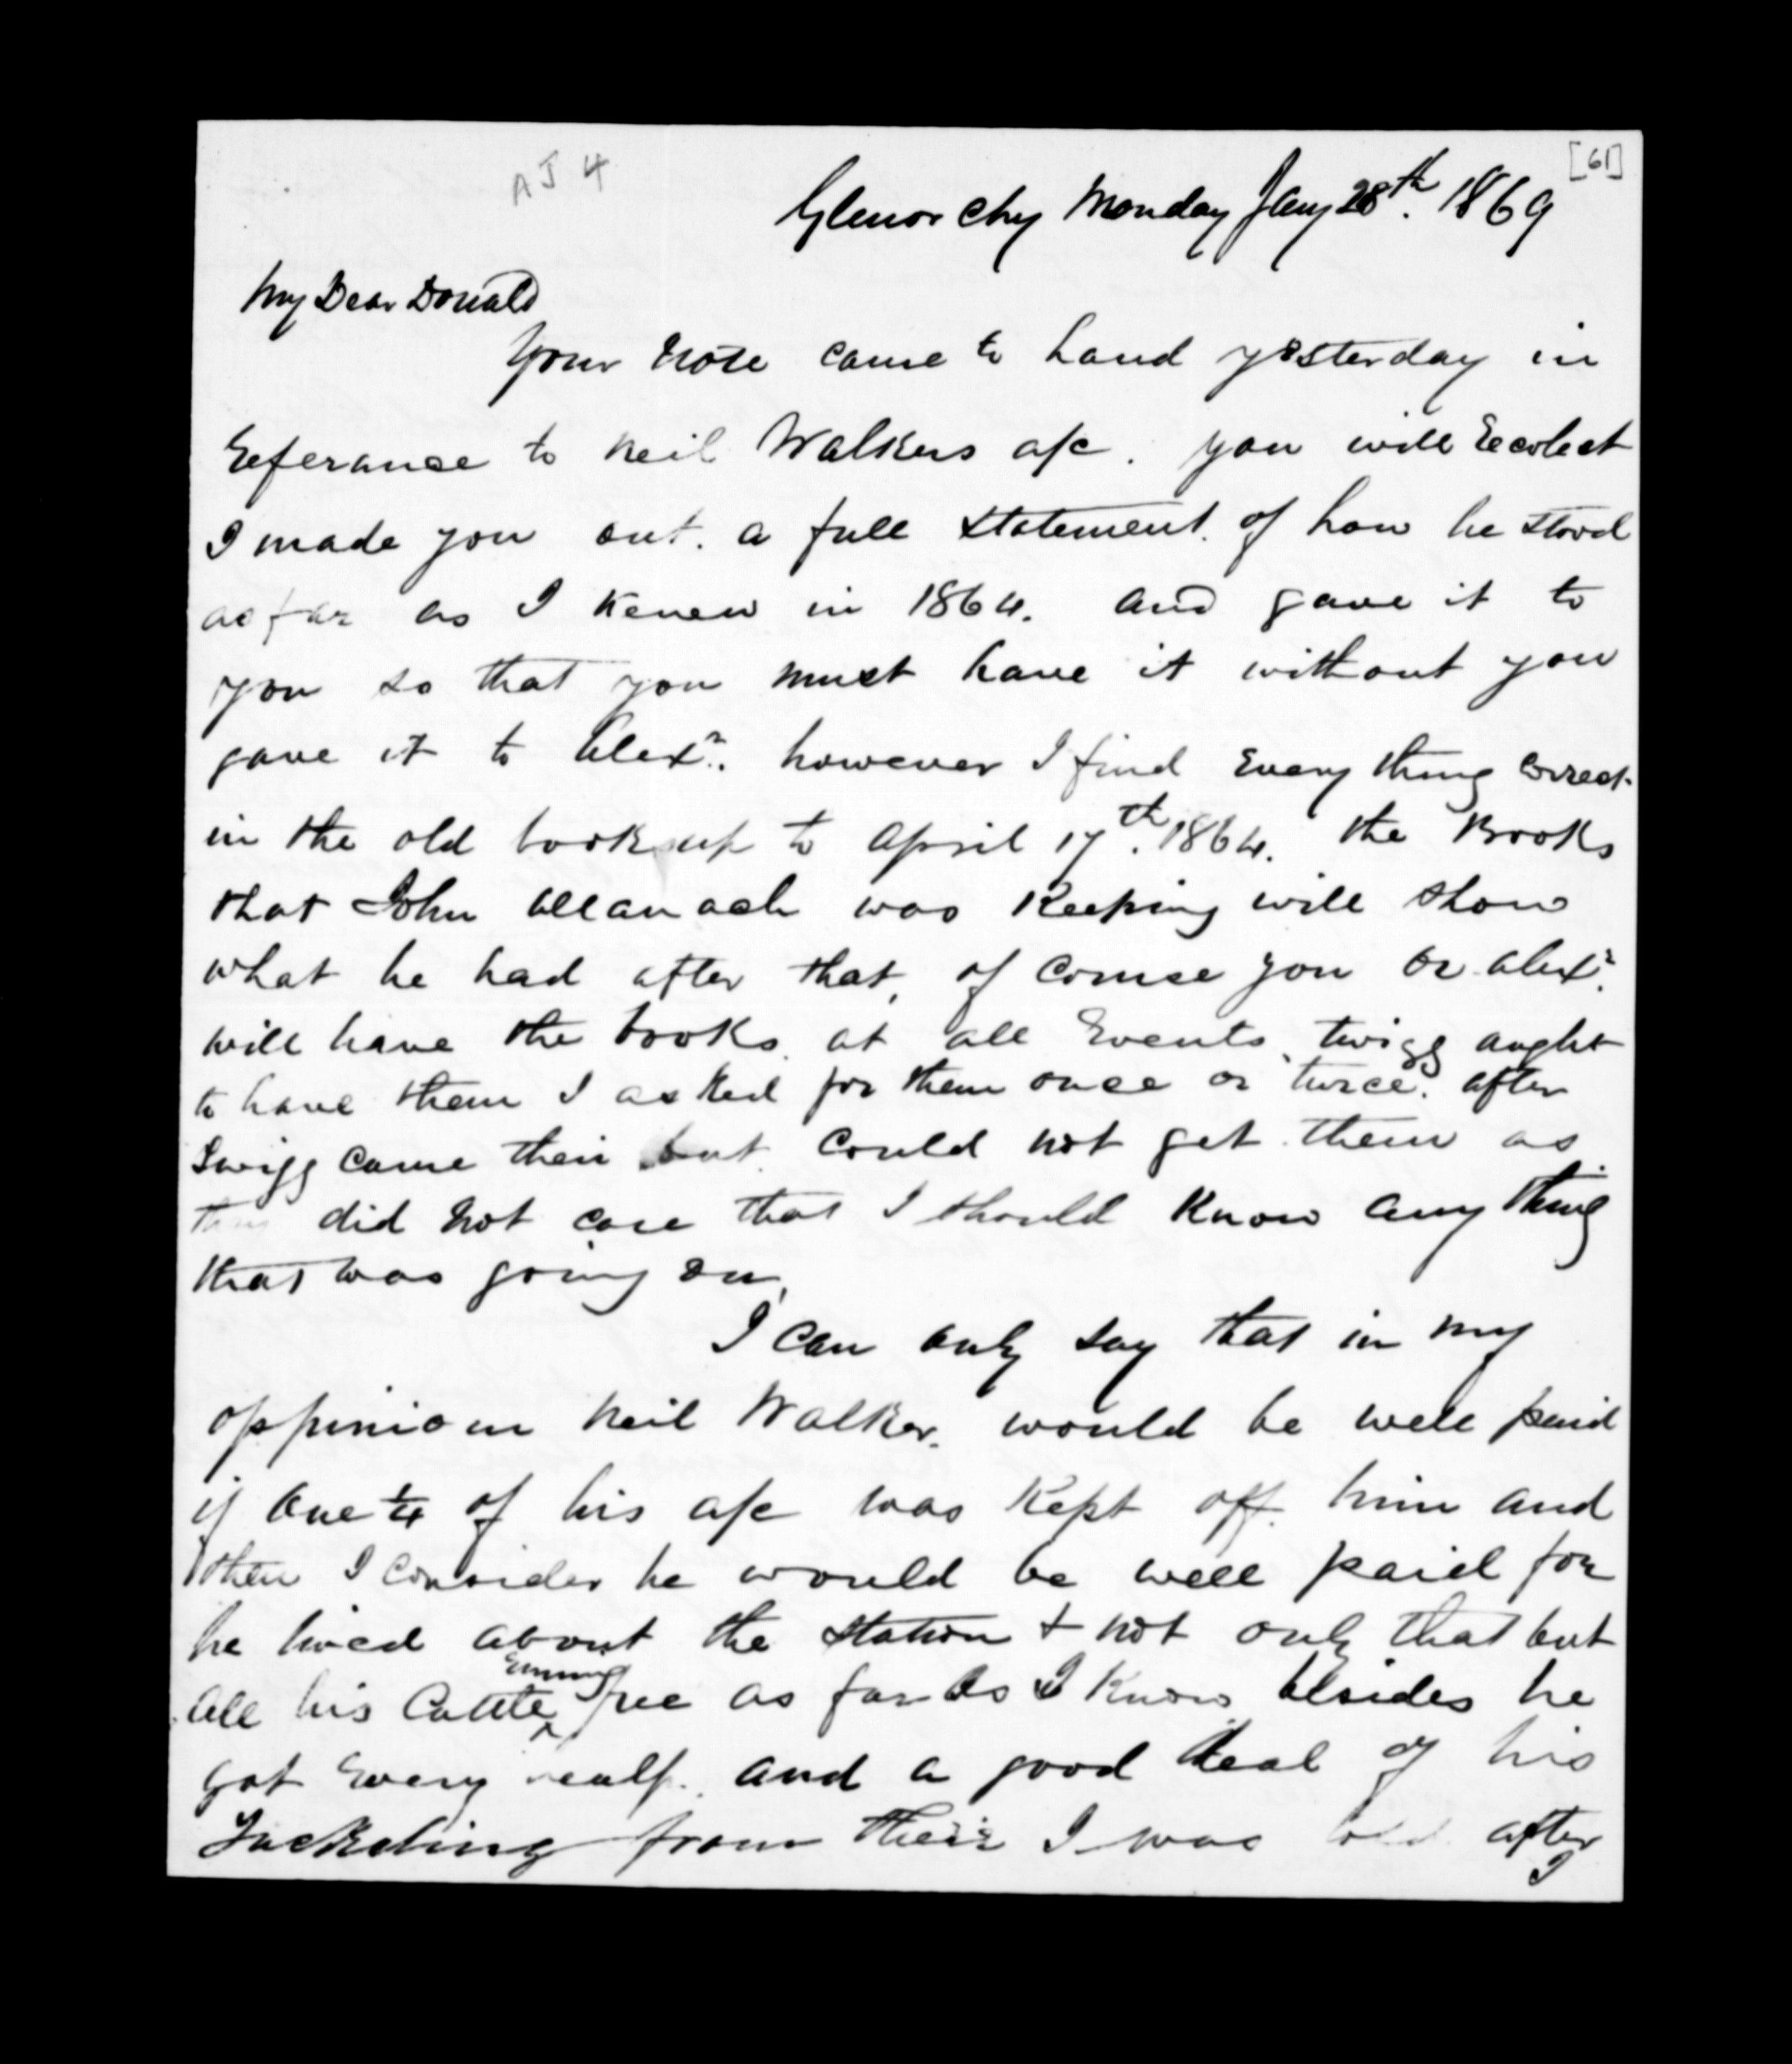 [61]
AJ 4
Glenorchy Monday Jany 28th. 1869
My Dear Donald
Your Note came to hand yesterday in
Referance to Neil Walkers a/c. you will Recolect
I made you out. a full statement. of how he stood
as far as I Kenew in 1864. and gave it to
you so that you must have it without you
gave it to Alexr. however I find Every thing Correct
in the old book up to April 17th. 1864. the Books
that John Allanach was Keeping will show
what he had after that, of Course you or Alexr.
will have the books. at all Events, twigg aught
to have them I asked for them once or twice. after
Twigg came their but. Could not get them as
they did not care that I should Know any thing
that was going on,
I Can only say that in my
oppinion Neil Walker. would be well paid
if One ¼ of his a/c was Kept off. him and
then I Consider he would be well paid for
he lived about the station & not only that but
all his Cattle ^ free as far as I Know besides he
got Every and a good deal of his
from their I was told after
I